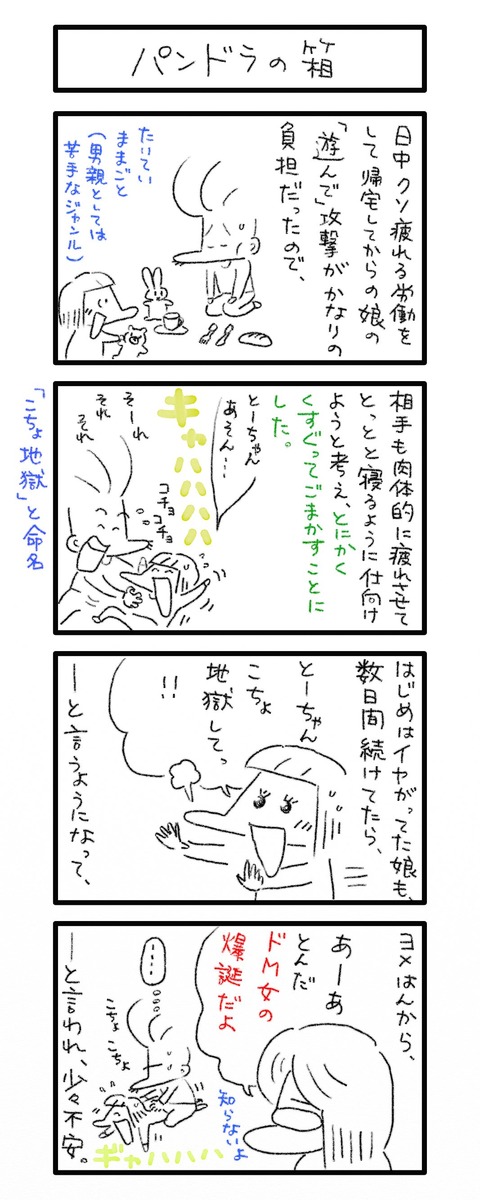 パンドラの箱
日中クソ疲れる労働を
して帰宅してからの娘の
「遊んで」攻撃がかなりの
負担だったので、
たいてい
ままごと
(男親としては
苦手なジャンル)
相手も肉体的に疲れさせて
とっとと寝るように仕向け
ようと考え、とにかく
くすぐってごまかすことに
した。
とーちゃん
あそん…
キャハハハハ
コチョ
コチョ
そーれ
それ
それ
「こちょ地獄」と命名
はじめはイヤがってた娘も、
数日間続けてたら、
とーちゃん
こちょ
地獄してっ
!!
ーと言うようになって、
ヨメはんから、
あーあ
とんだ
ドM女の
爆誕だよ
知らないよ
‥‥
こちょ
こちょ
ギャハハハハ
ーと言われ、少々不安。